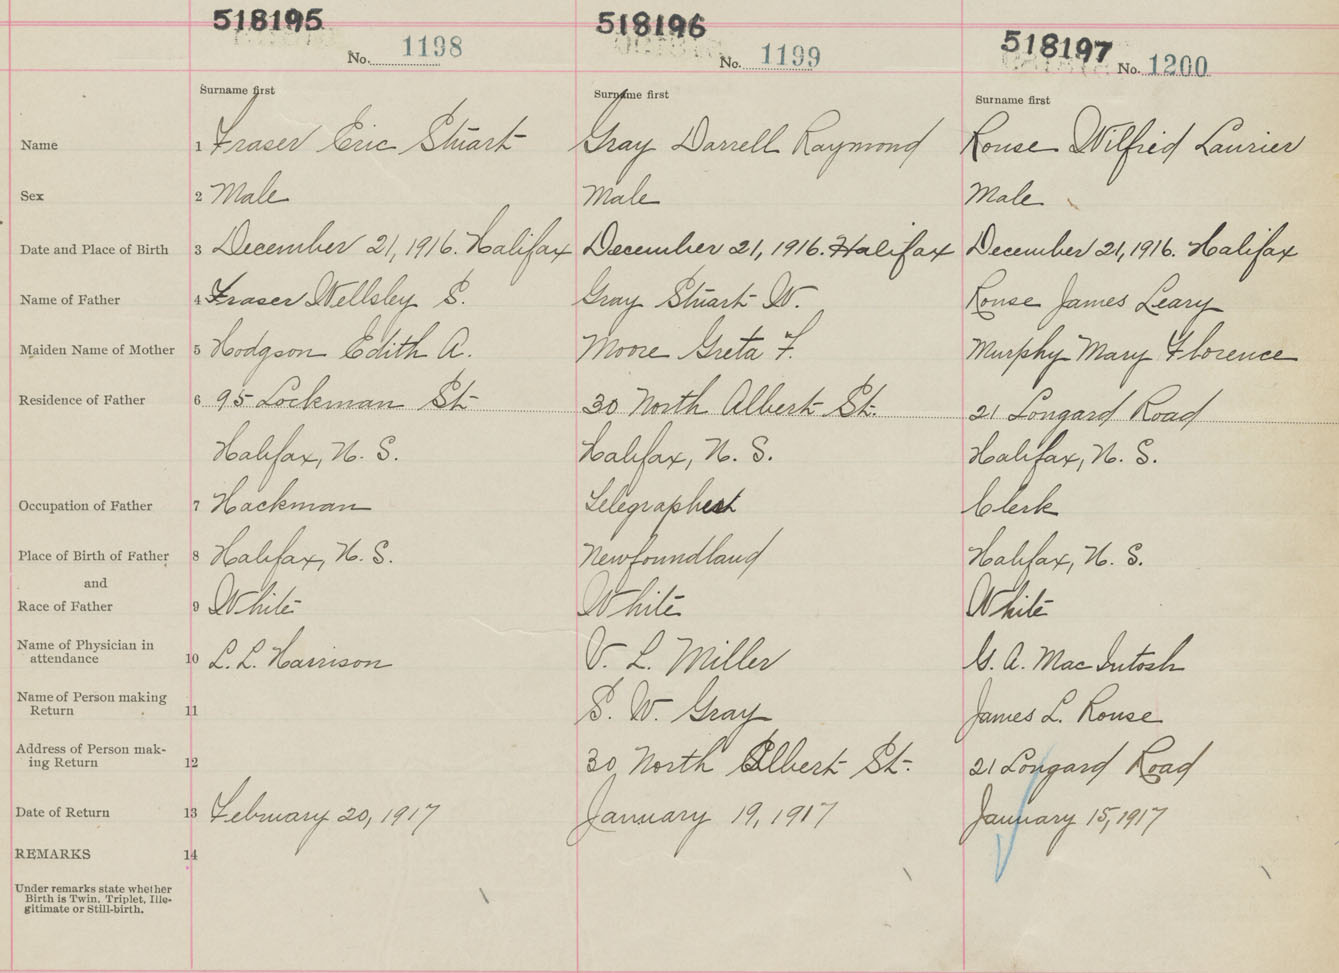 518195 518196 518197
No. 1198 No. 1199 No. 1200
Surname first Surname first Surname first
Name 1 Fraser Eric Stuart Gray Darrell Raymond Rouse Wilfred Laurier
Sex 2 Male Male Male
Date and Place of Birth 3 December 21, 1916. Halifax December 21, 1916. Halifax December 21, 1916. Halifax
Name of Father 4 Fraser Wellsley S. Gray Stuart W. Rouse James Leary
Maiden Name of Mother 5 Hodgson Edith A. Moore Greta F. Murphy Mary Florence
Residence of Father 6 95 Lockman St. 30 North Albert St. 21 Longard Road
Halifax, N. S. Halifax, N. S. Halifax, N. S.
Occupation of Father 7 Hackman Clerk
Place of Birth of Father 8 Halifax, N. S. Newfoundland Halifax, N. S.
and
Race of Father 9 White White White
Name of Physician in
attendance 10 L. L. Harrison V. L. Miller G. A. MacIntosh
Name of Person making
Return 11 S. W. Gray James L. Rouse
Address of Person mak-
ing Return 12 30 North Albert St. 21 Longard Road
Date of Return 13 February 20, 1917 January 19, 1917 January 15, 1917
REMARKS 14
Under remarks state whether
Birth is Twin, Triplet, Ille-
gitimate or Still-birth.